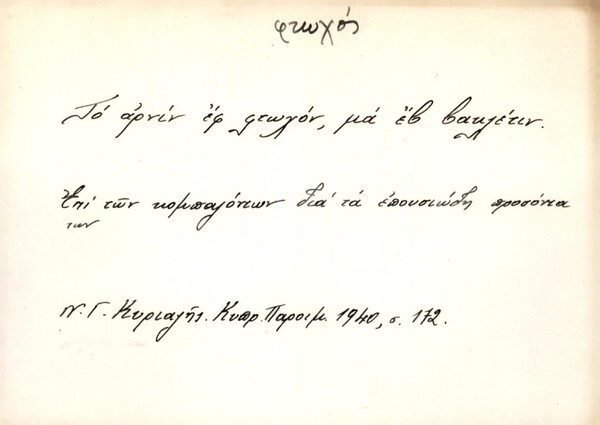 φτωχός
Τό ἀρνίν ἔφ φτωχόν, μά ἔβ βακλέτιν.
Ἐπί τῶν κομπαζόντων διά τά ἐπουσιώδη προσόντα
των
Ν. Γ. Κυριαζῆς. Κυπρ. Παροιμ. 1940, σ. 172.